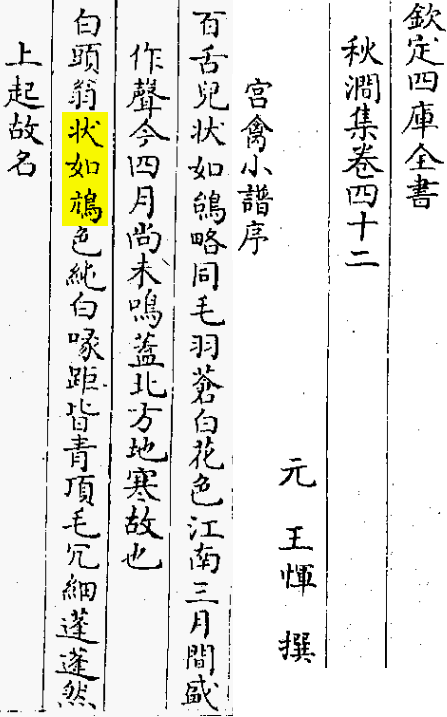 欽定四庫全書
秋澗集卷四十二
元 王惲 撰
宮禽小譜序
百舌兒狀如略同毛羽蒼白花色江南三月間盛
作聲今四月尚未鳴蓋北方地寒故也
白頭翁狀如色純白喙距皆青項毛冗細蓬蓬然
上起故名